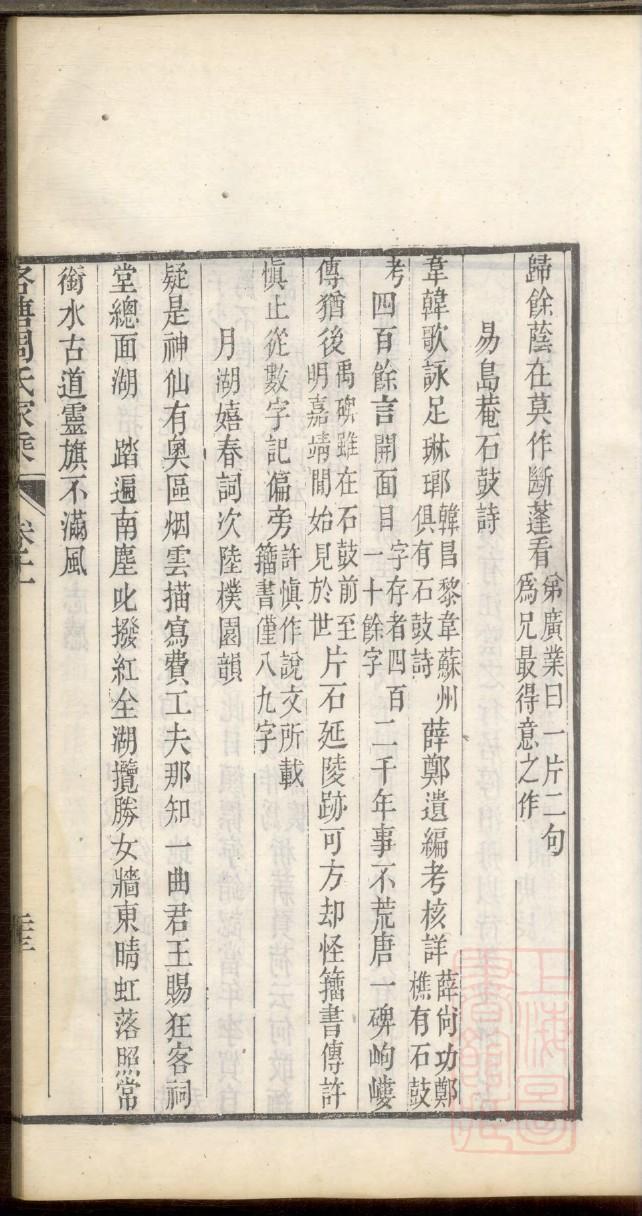 歸餘蔭在莫作斷蓬看弟廣業曰一片二句爲兄最得意之作
易島菴石鼓詩
韋韓歌詠足琳瑯韓昌黎韋蘇州俱有石鼓詩薛鄭遺編考核詳薛尚功鄭樵有石鼓
考四百餘言開面目字存者四百一十餘字二千年事不荒唐一碑岣嶁
傳猶後禹碑雖在石鼓前至明嘉靖間始見於世片石延陵跡可方却怪籀書傳許
愼止從數字記偏旁許愼作說文所載籀書僅八九字
月湖嬉春詞次陸樸園韻
疑是神仙有奥區烟雲描寫費工夫那知一曲君王賜狂客祠
堂總面湖 踏遍南塵叱撥紅全湖攬勝女牆東晴虹落照常
銜水古道靈旗不滿風
周氏家乘
上海圖書館藏